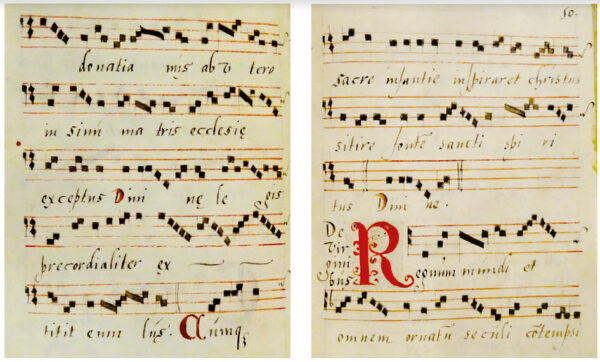 donatia mis ab v tero
in sinu ma tris ecclesię
exceptus Divi nę le gis
precordialiter ex
titit eum lus. Cumqꝫ
50.
sacre infantie inspiraret christus
sitire fonte sancti spi ri
tus Divi ne.
De Vir gini bus
Regnum mundi et
omnem ornatū seculi cōtempsi